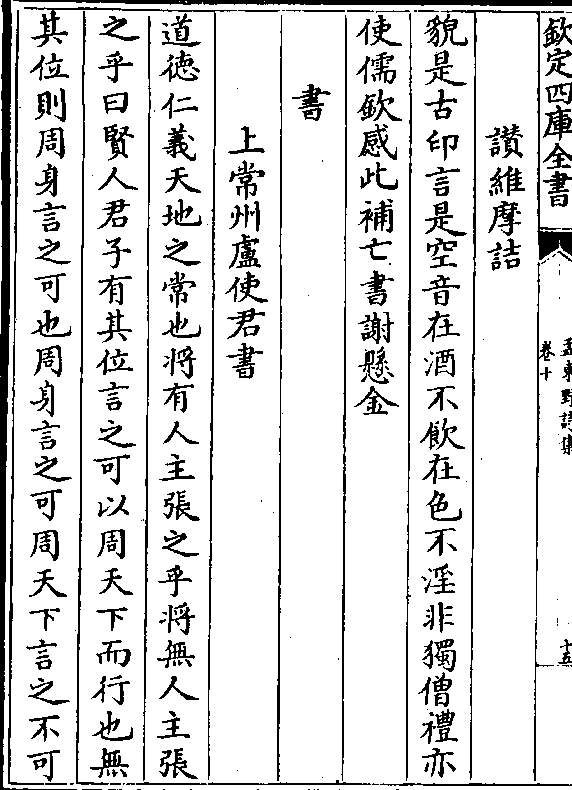 欽定四庫全書
孟東野詩集
卷十
十五
讚維摩詰
貌是古印言是空音在酒不飲在色不淫非獨僧禮亦
使儒欽感此補亡書謝懸金
書
上常州盧使君書
道德仁義天地之常也將有人主張之乎將無人主張
之乎曰賢人君子有其位言之可以周天下而行也無
其位則周身言之可也周身言之可周天下言之不可